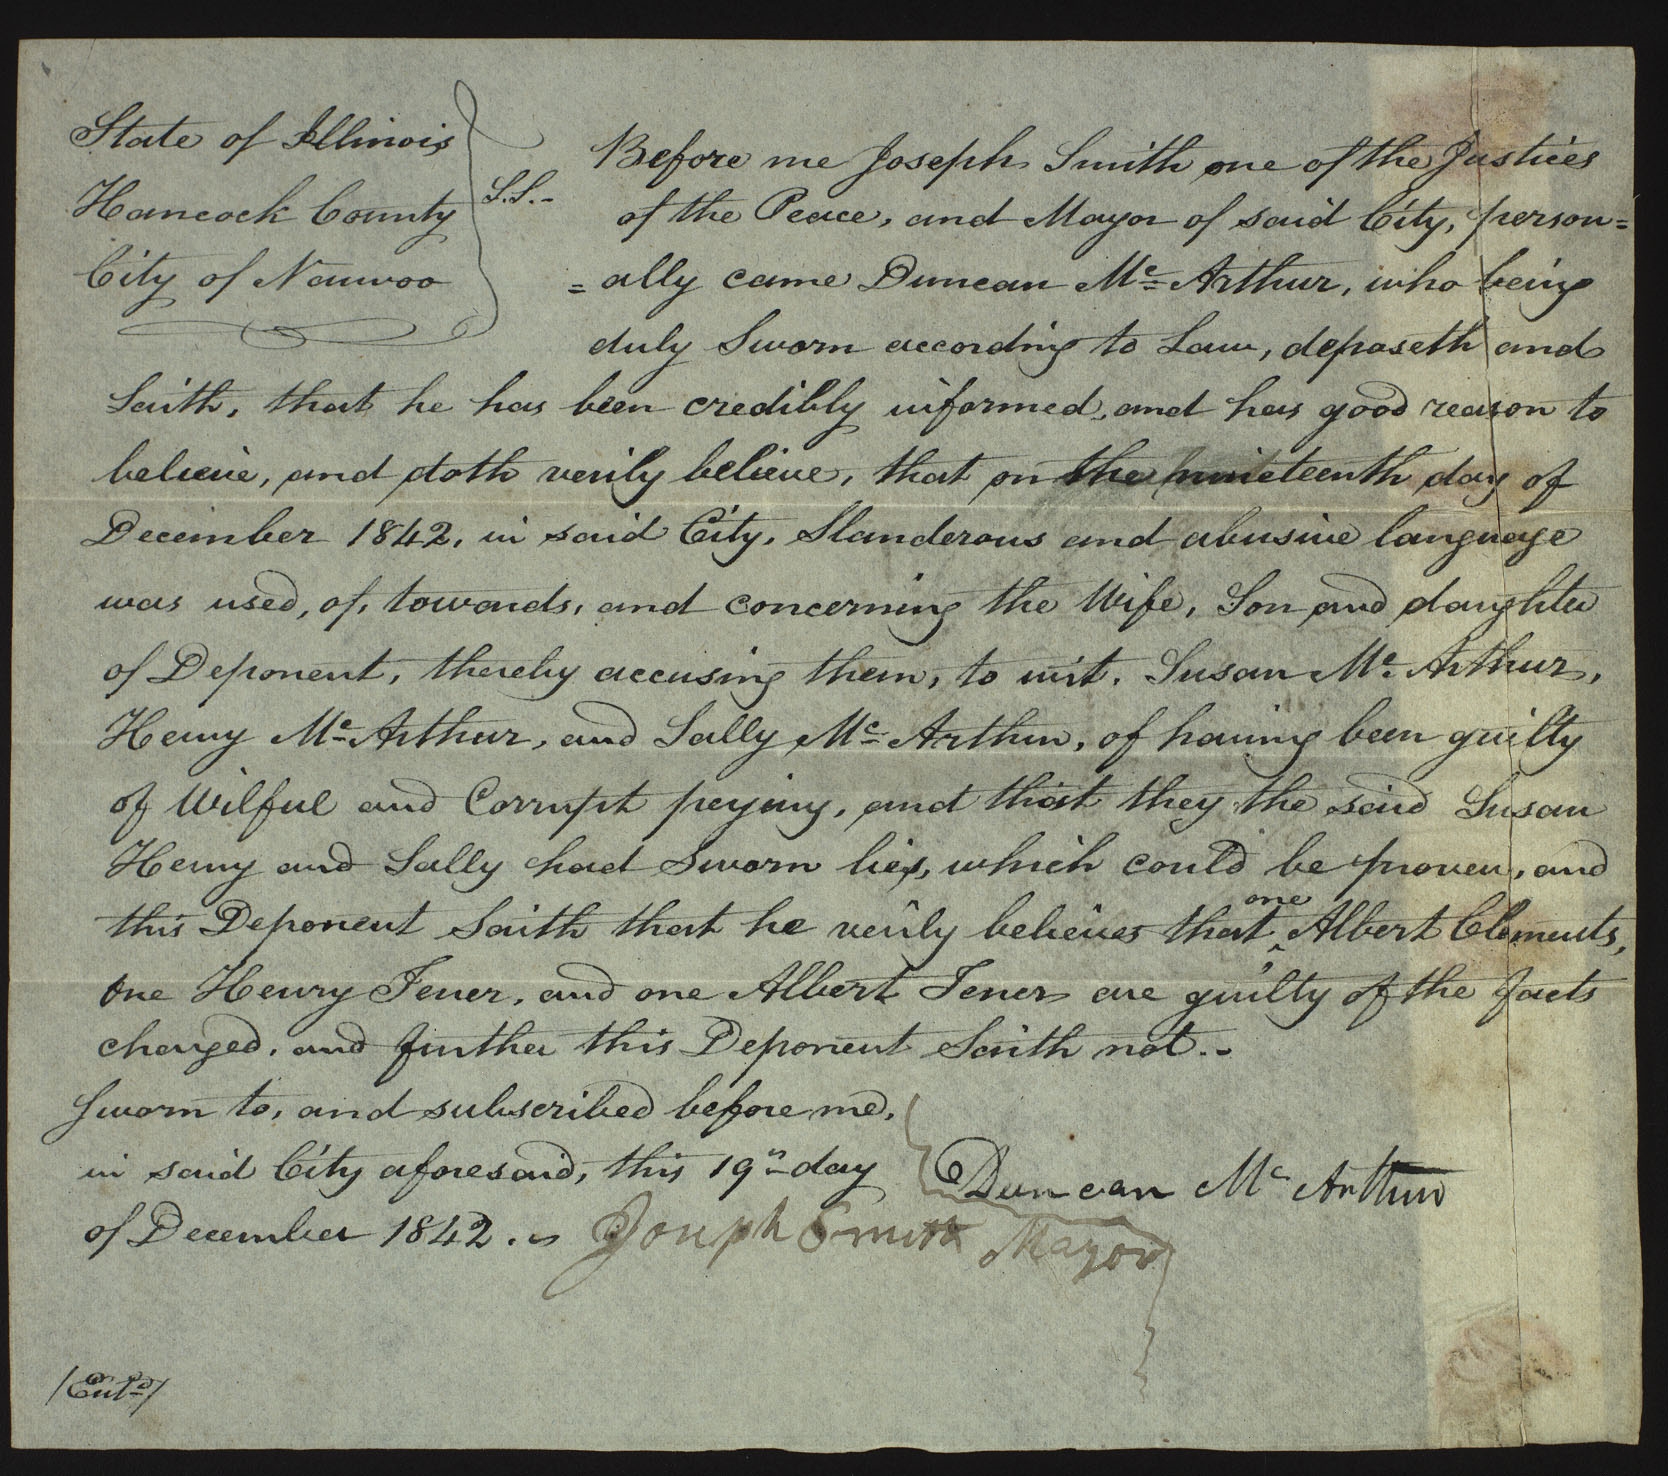 State of Illinois
Hancock County
City of Nauvoo
S.S.-
Before me Joseph Smith one of the Justices
of the Peace, and Mayor of said City, person=
=ally came Duncan Mc Arthur, who being
duly Sworn according to Law, deposeth and
Saith, that he has been credibly informed, and has good reason to
believe, and doth verily believe, that on the nineteenth day of
December 1842, in said City, Slanderous and abusive language
was used, of, towards, and concerning the Wife, Son and daughter
of Deponent, thereby accusing them, to wit. Susan Mc Arthur,
Henry Mc Arthur, and Sally Mc Arthur, of having been guilty
of Wilful and Corrupt perjury, and that they the said Susan
Henry and Sally had Sworn lies, which could be proven, and
this Deponent Saith that he verily believes that one Albert Clements,
one Henry Tener, and one Albert Tener are guilty of the facts
charged, and further this Deponent Saith not.-
Sworn to, and subscribed before me,
in said City aforesaid, this 19th day
of December 1842.
Duncan Mc Arthur
Joseph Smith Mayor
/Entd/